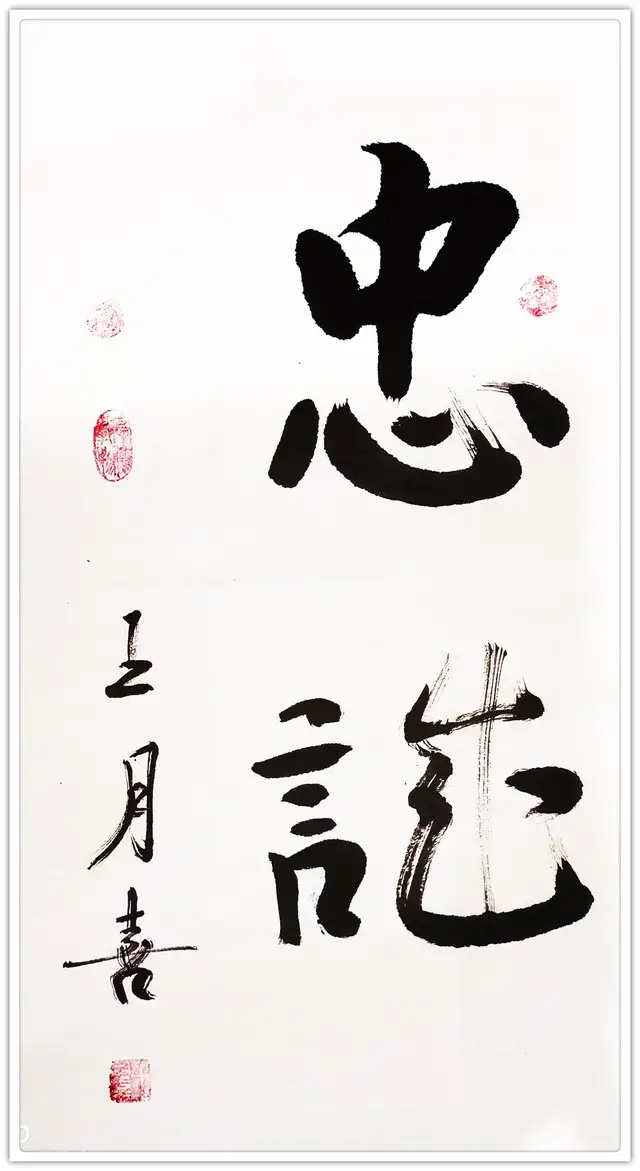 忠誠
王月喜